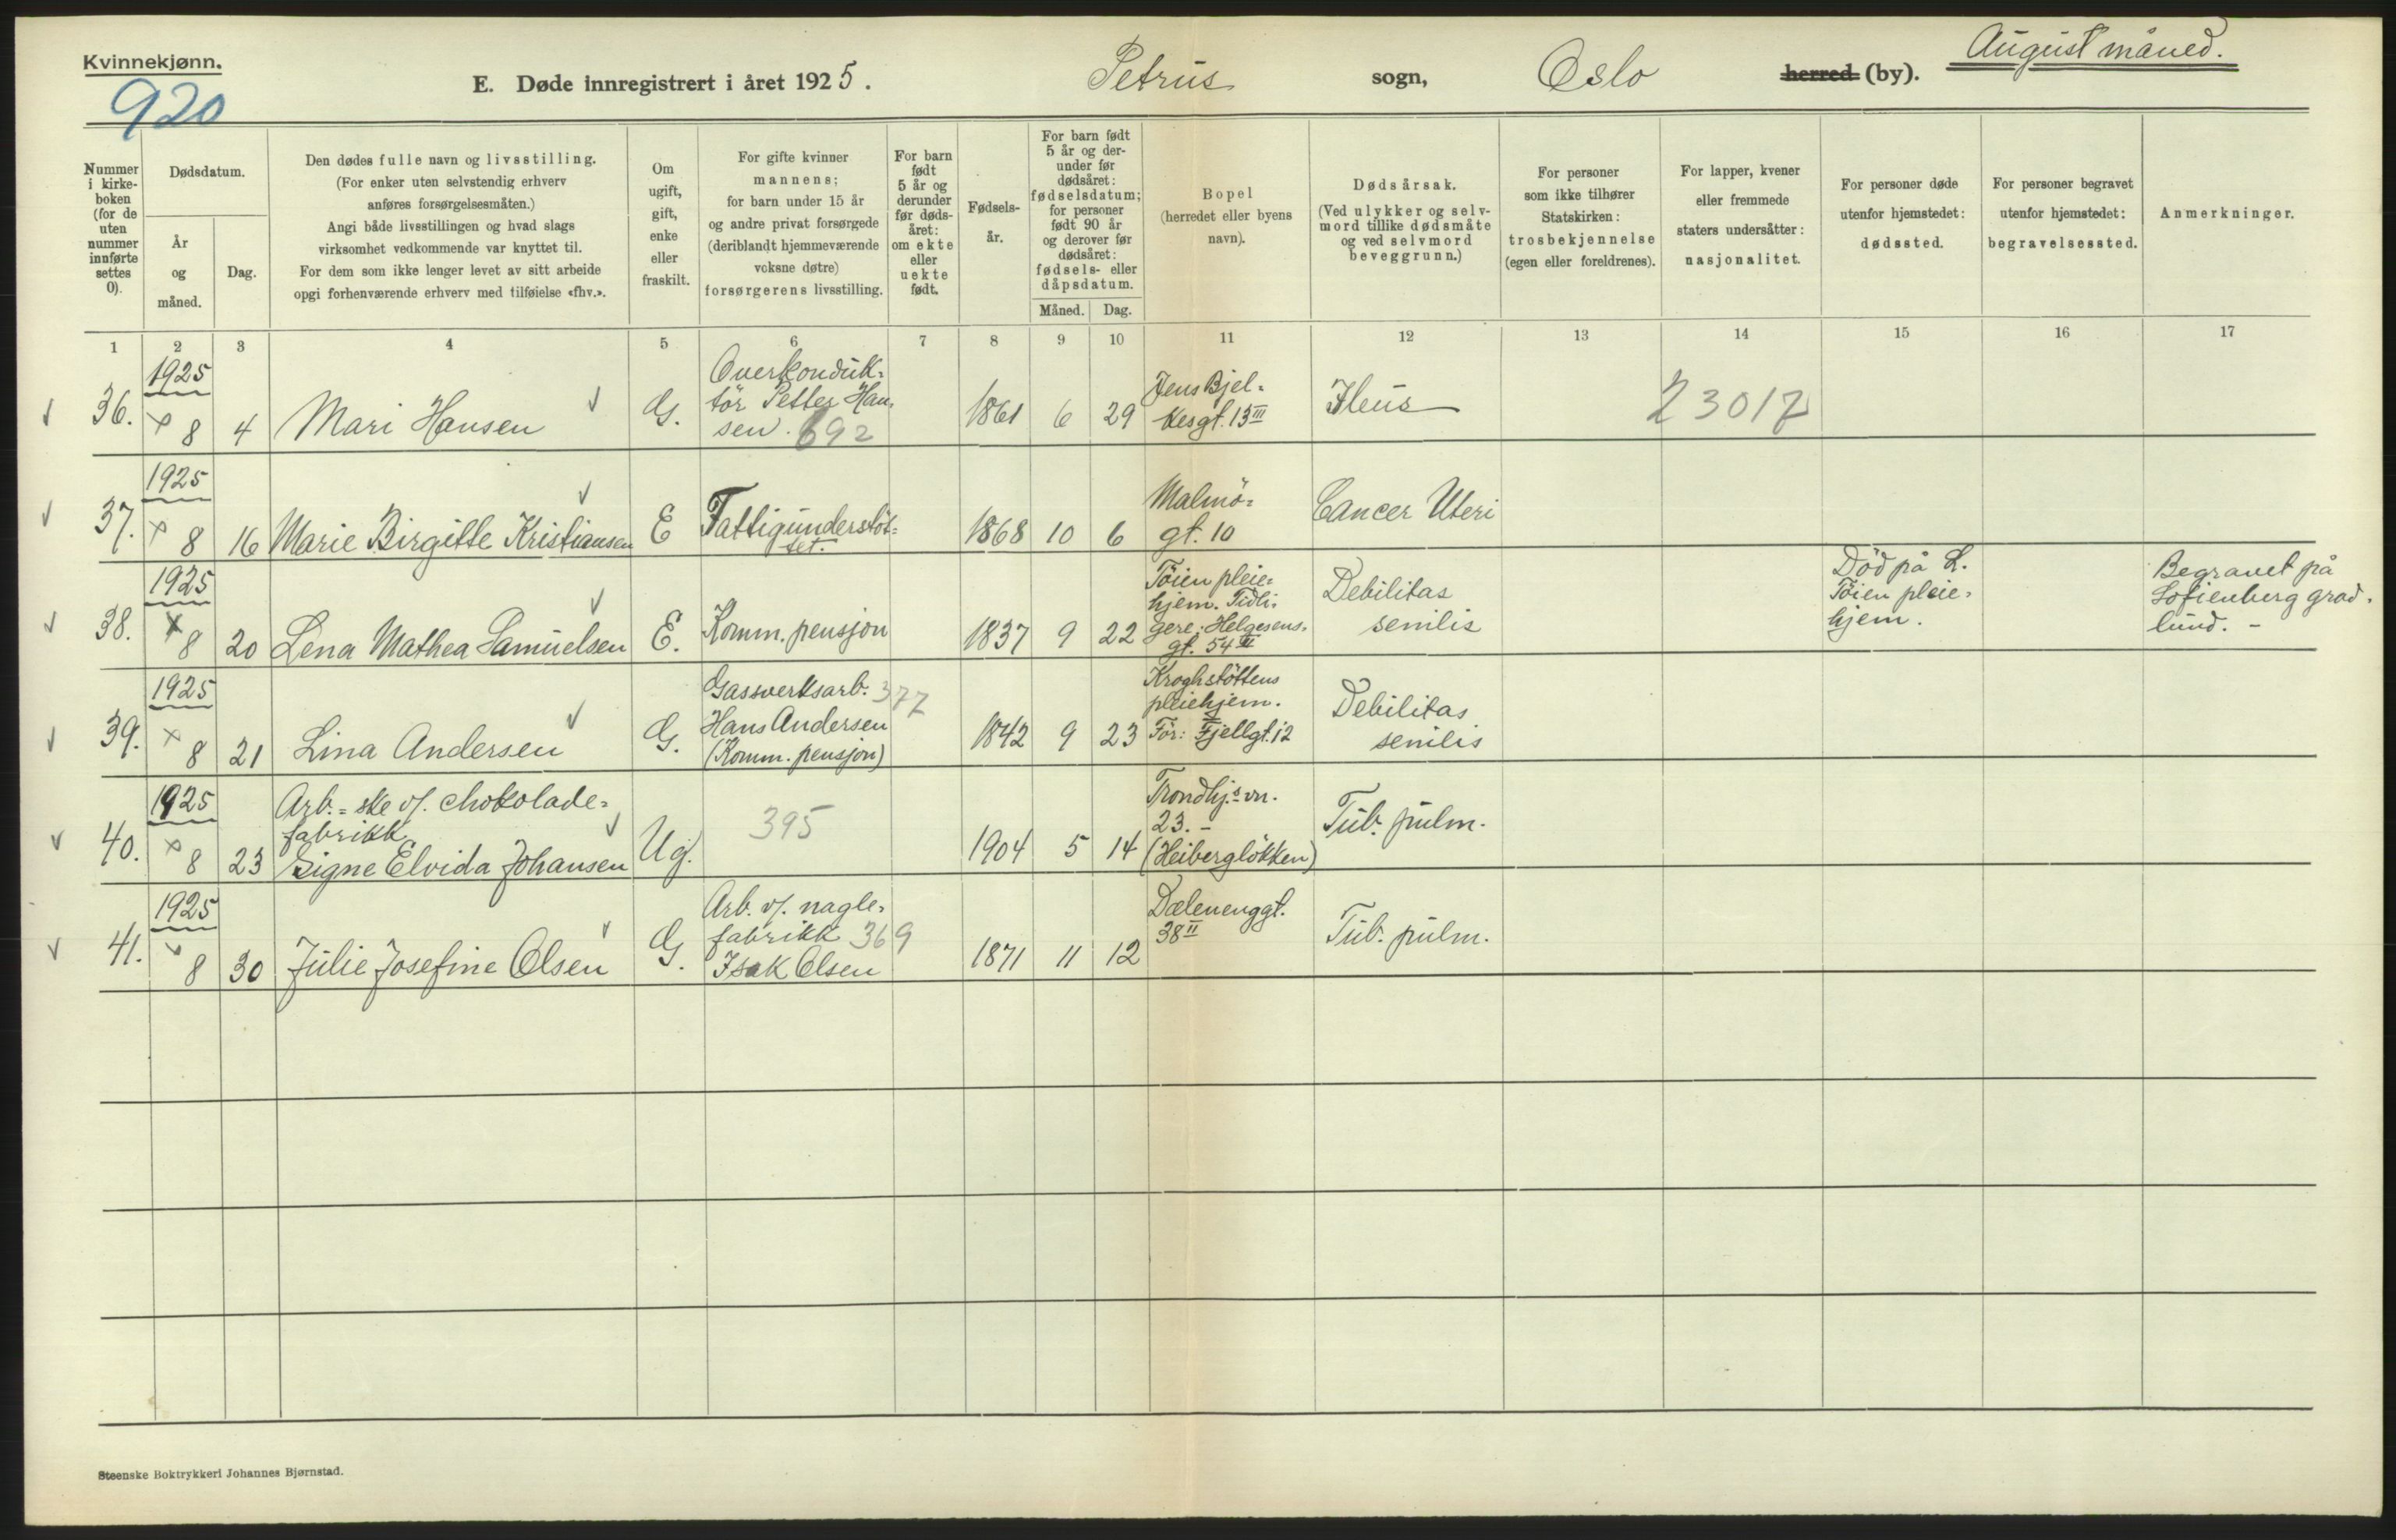 Kvinnekjønn.
920
E. Døde innregistrert i året 1925.
Petrus sogn, Oslo herred (by).
August måned.
Nummer i kirke-
boken
(for de
uten
nummer
innførte
settes
0).
Dødsdatum.
År
og
måned.
Dag.
Den dødes fulle navn og livsstilling.
(For enker uten selvstendig erhverv
anføres forsørgelsesmåten.)
Angi både livsstillingen og hvad slags
virksomhet vedkommende var knyttet til.
For dem som ikke lenger levet av sitt arbeide
opgi forhenværende erhverv med tilføielse «fhv.».
Om
ugift,
gift,
enke
eller
fraskilt.
For gifte kvinner
mannens;
for barn under 15 år
og andre privat forsørgede
(deriblandt hjemmeværende
voksne døtre)
forsørgerens livsstilling.
For barn
født
5 år og
derunder
før døds-
året:
om ekte
eller
uekte
født.
Fødsels-
år.
For barn født
5 år og der-
under før
dødsåret:
fødselsdatum;
for personer
født 90 år
og derover før
dødsåret:
fødsels- eller
dåpsdatum.
Måned. Dag.
Bopel
(herredet eller byens
navn).
Dødsårsak.
(Ved ulykker og selv-
mord tillike dødsmåte
og ved selvmord
beveggrunn.)
For personer
som ikke tilhører
Statskirken:
trosbekjennelse
(egen eller foreldrenes).
For lapper, kvener
eller fremmede
staters undersåtter:
nasjonalitet.
For personer døde
utenfor hjemstedet:
dødssted.
For personer begravet
utenfor hjemstedet:
begravelsessted.
Anmerkninger.
1 2 3 4 5 6 7 8 9 10 11 12 13 14 15 16 17
1925
36. 8 4 Mari Hansen G.
Overkonduk-
tör Petter Han-
sen. 692
1861 6 29
Jens Bjel-
kesgt. 13 III
Ileus
23017
1925
37. 8 16 Marie Birgitte Kristiansen E
Fattigunderstöt-
tet.
1868 10 6
Malmö-
gt. 10
Cancer Uteri
1925
38. 8 20 Lena Mathea Samuelsen E.
Komm. pensjon
1837 9 22
Töien pleie-
hjem. Tidli-
gere: Helgesens-
gt. 54 III
Debilitas
senilis
Död på L.
Töien pleie-
hjem.
Begravet på
Sofienberg grav-
lund. -
1925
39. 8 21 Lina Andersen G.
Gassverksarb. 377
Hans Andersen
(Komm. pensjon)
1842 9 23
Kroghstöttens
pleiehjem.
För: Fjellgt. 12
Debilitas
senilis
1925
40. 8 23
Arb.=ske v/. chokolade-
fabrikk
Signe Elvida Johansen
Ug.
395
1904 5 14
Trondhj.s vn.
23. -
(Heiberglökken)
Tub. pulm.
1925
41. 8 30 Julie Josefine Olsen G.
Arb. v/. nagle-
fabrikk 369
Isak Olsen
1871 11 12
Dælenenggt.
38 II
Tub. pulm.
Steenske Boktrykkeri Johannes Bjørnstad.